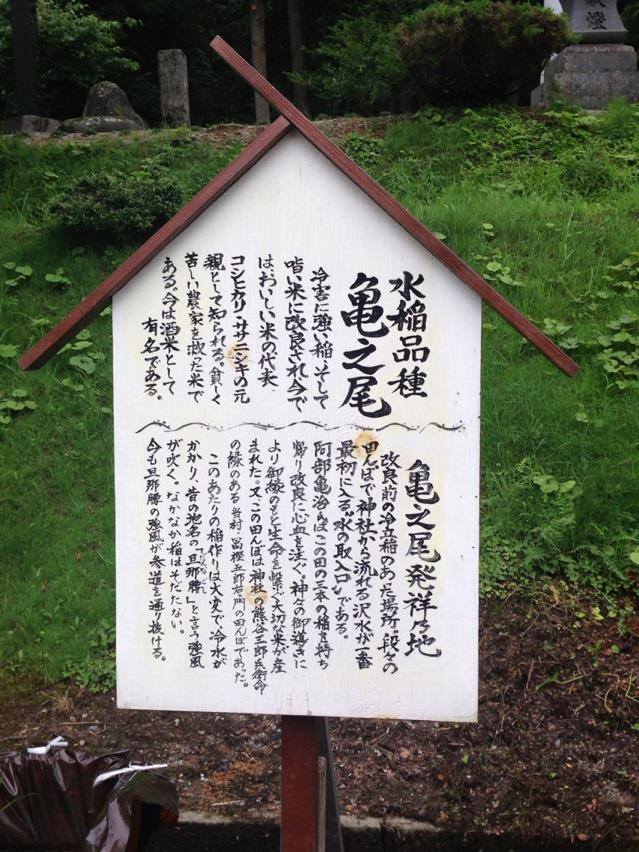 水稲品種
亀之尾
冷害に強い稲、そして
旨い米に改良され、今で
は、おいしい米の代表、
コシヒカリ・ササニシキの元
親として知られる。貧しく
苦しい農家を救った米で
ある。今は酒米として
有名である。
亀之尾発祥の地
改良前の冷立稲のあった場所。段々の
田んぼで神社から流れる沢水が一番
最初に入る〝水の取入口〟である。
阿部亀治翁はこの田の三本の穂を持ち
帰り改良に心血を注ぐ。神々の御導きに
より御縁のもと生命を繋ぐ大切な業が産
まれた。又、この田んぼは神社の熊谷三郎兵衛命
の縁のある当村・冨樫五郎右ヱ門の田んぼであった。
このあたりの稲作りは大変で冷水が
かかり、昔の地名の「旦那腰」と言う強風
が吹く。なかなか稲はそだたない。
今も旦那腰の強風が参道を通り抜ける。
燈